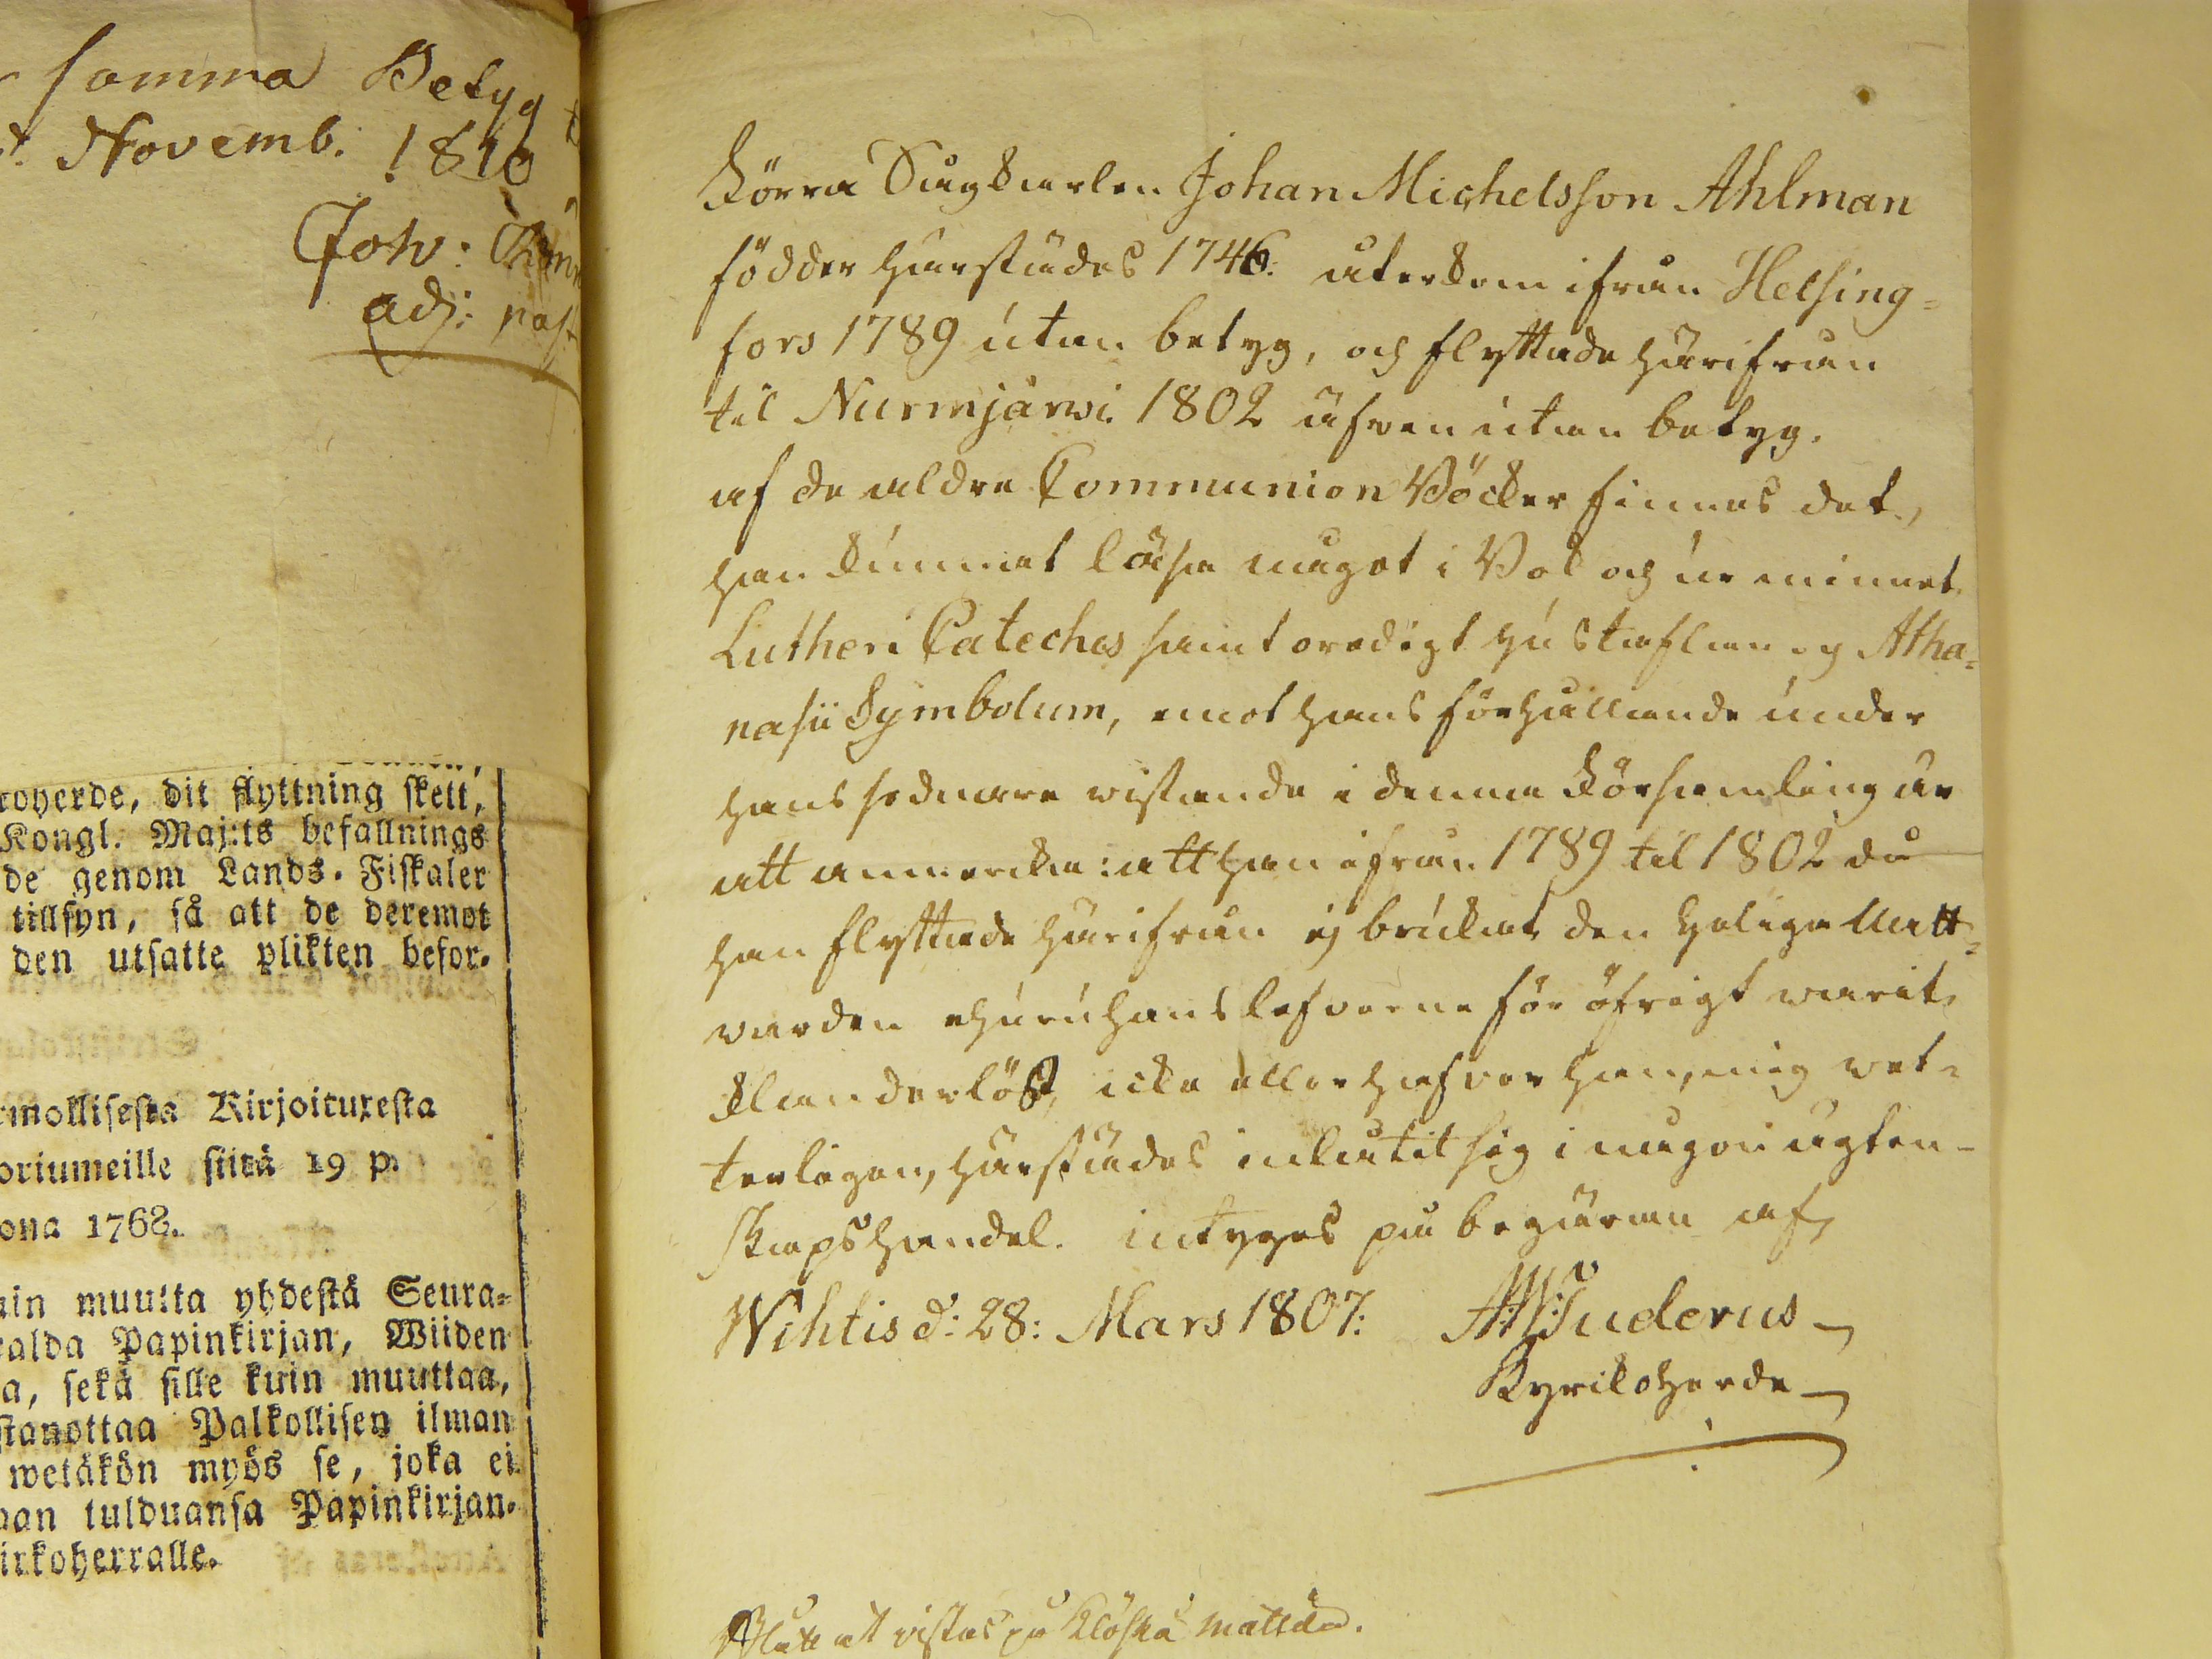 samma Betyg
Novemb. 1810
Joh:
adj: past
royerde, dit flyttning skett,
Kongl. Maj:ts befallnings
de genom Lands-Fiskaler
tillsyn, så att de deremot
den utsatte plikten befor-
mollisesta Kirjoituxesta
oriumeille siitä 19 p.
ona 1768.
in muutta yhdestä Seura-
alda Papinkirjan, Wiiden
a, sekä sille kuin muuttaa,
stanottaa Palkollisen ilman
wetäkön myös se, joka ei
aan tulduansa Papinkirjan-
irkoherralle.
Förra Dugkarlen Johan Michelsson Ahlman
född härstädes 1746: återkom ifrån Helsing=
fors 1789 utan betyg, och flyttade härifrån
til Nurmjärwi 1802 äfven utan betyg.
af de äldre Communion Böcker finnes det,
han kunnat läsa något i Bok och ur minnet
Lutheri Cateches samt oredigt hustaflan och Atha=
nasii Symbolum, emot hans förhållande under
hans sednare vistande i denna Församling är
att anmerka: att han ifrån 1789 til 1802 då
han flyttade härifrån ej brukat den heliga Natt=
varden ehuru hans lefverne för öfrigt warit
klanderlöst, icke eller hafver han, mig vet=
terligen, härstädes inlåtit sig i någon ägten-
skapshandel. intyges på begäran af
Wihtis d: 28: Mars 1807: A:W:Tuderus
Kyrkoherde
att vistas på Klöfskå